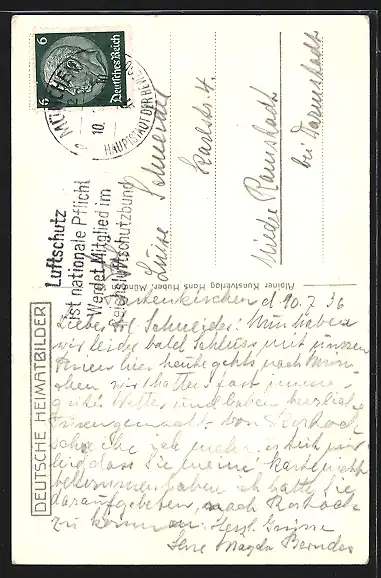 6
6
Deutsches Reich
MÜNCHEN
10.
HAUPTSTADT DER BEWEGUNG
Luftschutz
ist nationale Pflicht
Werdet Mitglied im
Reichsluftschutzbund
Luise Schneider
Karlstr. 4.
Nieder Ramstadt
bei Darmstadt
Alpiner Kunstverlag Hans Huber, München
DEUTSCHE HEIMATBILDER
Partenkirchen d. 10.7.36
Liebes Frl. Schneider! Nun haben
wir leider bald Schluss mit unseren
hier heute gehts nach Mün-
chen wir hatten fast immer
gutes Wetter und haben herzlich
von Rostock
Sie ich mehr, es tut mir
leid dass Sie meine Karte nicht
bekommen haben ich hatte Sie
darauf gebeten, nach Rostock
zu kommen. Herzl. Grüsse
Magda Berndes